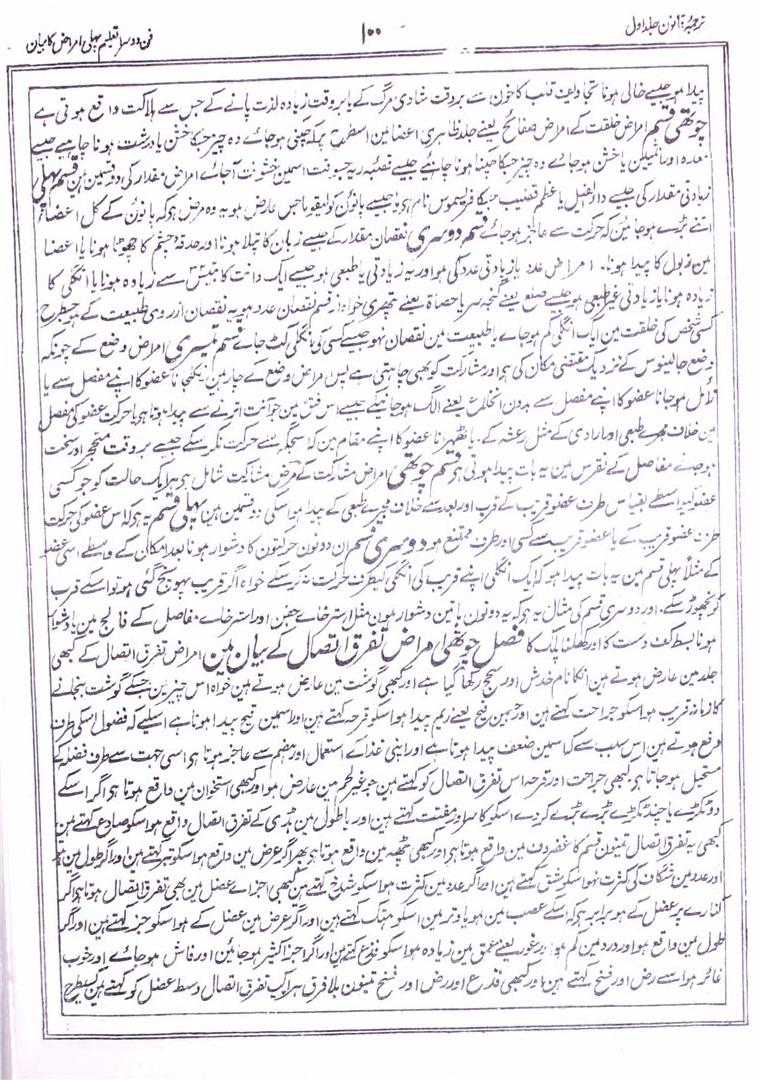 ترجمہ قانون جلد اول
۱۰۰
فن دوسرا تعلیم پہلی امراض کا بیان
پیدا ہو جیسے خالی ہونا تجاویف قلب کا خون سے بروقت شادی مرگ کے یا بروقت زیادہ لذت پانے کے جس سے ہلاکت واقع ہوتی ہے
چوتھی قسم امراض خلقت کے امراض صفائح یعنے جلد ظاہری اعضا مین اسطرح پر کہ چکنی ہوجائے وہ چیز جسکا خشن یا درشت ہونا چاہیے جیسے
معدہ اور یا خشن ہوجاے وہ چیز جسکا چکنا ہونا چاہیے جیسے قصبہ ریہ جسوقت اسمین خشونت آجاے امراض مقدار کی دو قسمین ہین قسم پہلی
زیادتی مقدار کی جیسے داء الفیل یا عظم قضیب جسکا فریسموس نام ہی یا جیسے عارض ہو یہ وہ مرض ہو کہ کے کل اعضا
اتنے بڑے ہوجائین کہ حرکت سے عاجز ہوجاے قسم دوسری نقصان مقدار کے جیسے زبان کا پتلا ہونا اور حدقہ چشم کا چھوٹا ہونا یا اعضا
مین ذبول کا پیدا ہونا۔ امراض عدد یا زیادتی عدد کی ہو اور یہ زیادتی یا طبعی ہو جیسے ایک دانت کا بتیس سے زیادہ ہونا یا انگلی کا
زیادہ ہونا یا زیادتی غیر طبعی ہو جیسے یعنے یا حصاۃ یعنے پتھری خواہ از قسم نقصان عدد ہو یہ نقصان از روی طبیعت کے ہو جسطرح
کسی شخص کی خلقت مین ایک انگلی کم ہوجاے یا طبیعت مین نقصان نہو جیسے کسی کی انگلی کٹ جاے قسم تیسری امراض وضع کے چونکہ
وضع جالینوس کے نزدیک مقتضی مکان کی ہے اور مشارکت کو بھی چاہتی ہے پس امراض وضع کے چار ہین نکلجانا عضو کا اپنے مفصل سے یا
زائل ہوجانا عضو کا اپنے مفصل سے بدون انخلاع یعنے الگ ہوجانیکے جیسے اس فتق مین جو آنت اترنے سے پیدا ہوتا ہی یا حرکت عضو کی مفصل
مین خلاف طبعی اور ارادی کے مثل رعشہ کے۔ یا ٹھہرنا عضو کا اپنے مقام مین کہ اسجگہ سے حرکت نکر سکے جیسے بروقت متحجر اور سخت
ہوجانے مفاصل کے نقرس مین یہ بات پیدا ہوتی ہی قسم چوتھی امراض مشارکت کے مرض مشارکت شامل ہی ہر ایک حالت کو جو کسی
عضو کیواسطے بقیاس طرف عضو قریب کے قرب اور بعد سے خلاف مجرے طبعی کے پیدا ہو اسکی دو قسمین ہین پہلی قسم یہ ہی کہ اس عضو کی حرکت
طرف عضو قریب کے یا عضو قریب سے کسی اور طرف ممتنع ہو دوسری قسم ان دونون حرکتون کا دشوار ہونا بعد امکان کے واسطے اسی عضو
کے مثلاً پہلی قسم مین یہ بات پیدا ہو کہ ایک انگلی اپنے قریب کی انگلی کیطرف حرکت نہ کرسکے خواہ اگر قریب پہونچ گئی ہو تو اسکے قرب
کو چھوڑ سکے۔ اور دوسری قسم کی مثال یہ ہو کہ یہ دونون باتین دشوار ہون مثل استرخاے جفن اور استرخاے مفاصل کے فالج مین یا دشوار
ہونا بسط کف دست کا اور کھلنا پلک کا فصل چوتھی امراض تفرق اتصال کے بیان مین امراض تفرق اتصال کے کبھی
جلد مین عارض ہوتے ہین انکا نام خدش اور سحج رکھا گیا ہے اور کبھی گوشت مین عارض ہوتے ہین خواہ اس چیز مین جسکے گوشت بنجانے
کا زمانہ قریب ہو اسکو جراحت کہتے ہین اور جسمین قیح یعنے ریم پیدا ہو اسکو قرحہ کہتے ہین اور اسمین قیح پیدا ہوتا ہے اسلیے کہ فضول اسکی طرف
دفع ہوتے ہین اس سبب سے کہ اسمین ضعف پیدا ہوتا ہے اور اپنی غذا کے استعمال اور ہضم سے عاجز ہوتا ہی اسی جہت سے طرف فضلہ کے
مستحیل ہوجاتا ہی کبھی جراحت اور قرحہ اس تفرق اتصال کو کہتے ہین جو غیر لحم مین عارض ہو اور کبھی استخوان مین واقع ہوتا ہی اگر اسکے
دو ٹکڑے یا چند ٹکڑے بڑے بڑے کردے اسکو کاسر اور مفتت کہتے ہین اور یا طول مین ہڈی کے تفرق اتصال واقع ہو اسکو صادع کہتے ہین
کبھی یہ تفرق اتصال تینون قسم کا غضروف مین واقع ہوتا ہی اور کبھی پٹھہ مین واقع ہوتا ہی پھر اگر عرض مین واقع ہو اسکو بتر کہتے ہین اور اگر طول مین ہو
اور عدد مین شگاف کی کثرت نہو اسکو شق کہتے ہین اور اگر عدد مین کثرت ہو اسکو شدخ کہتے ہین کبھی اجزاے عضل مین بھی تفرق اتصال ہوتا ہی اگر
کنارے پر عضل کے ہو برابر ہی کہ اسکے عصب مین ہو یا وتر مین اسکو ہتک کہتے ہین اور اگر عرض مین عضل کے ہو اسکو جز کہتے ہین اور اگر
طول مین واقع ہو اور عدد مین کم ہو اور غور یعنے عمق مین زیادہ ہو اسکو فدغ کہتے ہین اور اگر اجزا کثیر ہوجائین اور فاش ہوجاے اور خوب
غائر ہو اسے رض اور فسخ کہتے ہین اور کبھی فدغ اور رض اور فسخ تینون بلا فرق ہر ایک تفرق اتصال وسط عضل کو کہتے ہین کسیطرح